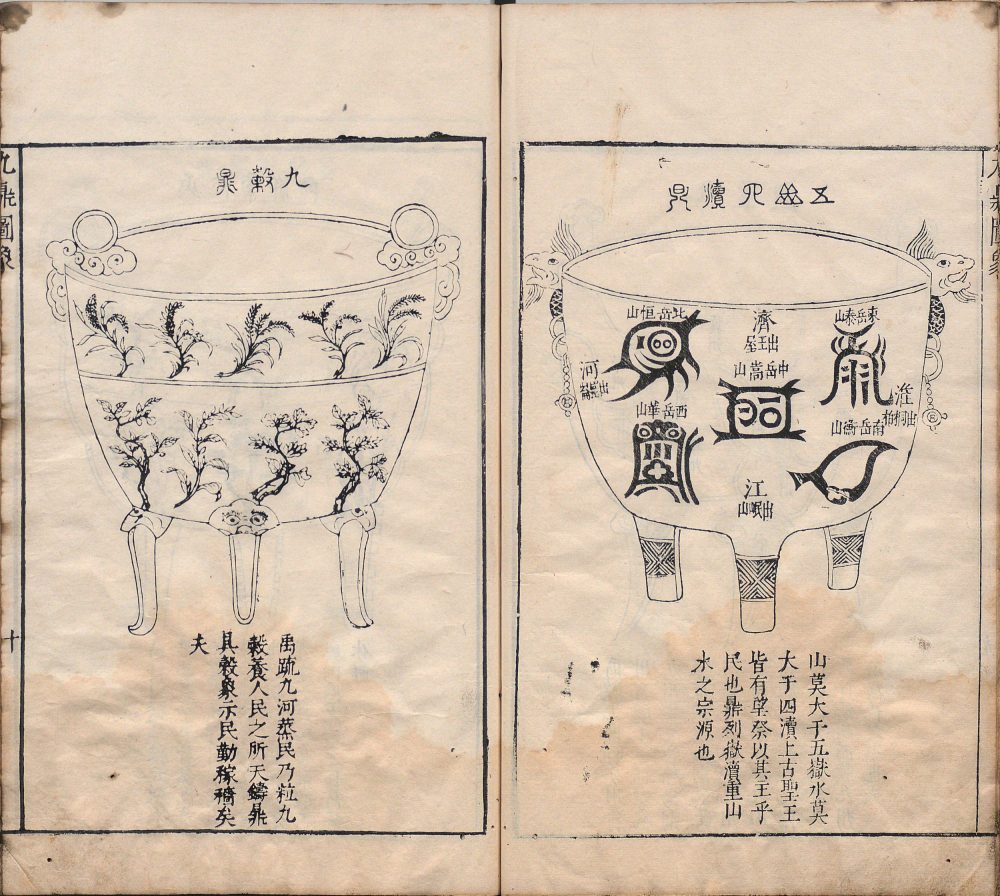 九鼎圖象
五嶽四瀆鼎
東岳泰山
濟
出王屋
北岳恒山
中岳嵩山
淮
出桐栢
河
南岳衡山
西岳華山
江
出岷山
山莫大于五嶽水莫
大于四瀆上古聖王
皆有望祭以其主乎
民也鼎列嶽瀆重山
水之宗源也
九穀鼎
禹疏九河蒸民乃粒九
穀養人民之所天鑄鼎
具穀象示民勤稼穡矣
夫
九鼎圖象
十